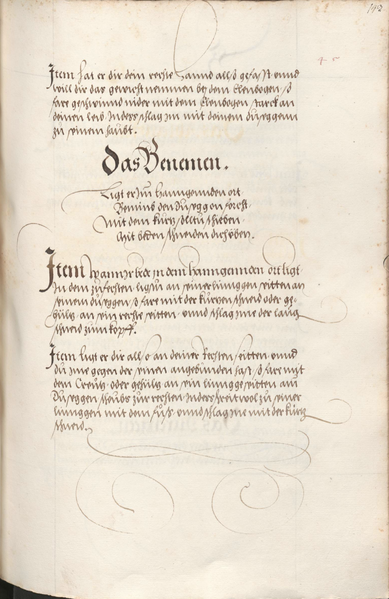 Item hat er dir dein rechte hannd also gefast vnnd
will dir das gewicht nemmen bey dem Elenbogen / so
fare geschwind nider mit dem Elenbogen / starck an
deinen leib Inders schlag Im mit deinem dusseggen
zu seinem haubt.
Das Benemen.
Ligt er Im hanngennden ort
Benims den dusseggen forst
Mit dem kurtz / solltu schieben
Mit beden schneiden dich yeben.
Item wann er dir In dem hanngennden ort ligt
In dem zufechten ligstu an seiner linnggen seitten an
seinem dusseggen / so fare mit der kurtzen schneid oder
an sein rechte seitten vnnd schlag Ime der lanng
schneid zum kopff.
Item ligt er dir also an deiner rechten seitten vnnd
du Ime gegen der seinen angebunden hast / so fare mit
dem Creutz oder gehiltz an sein linngge seitten am
dusseggen scheubs zur rechten Inders wol zu seiner
linnggen mit dem fuss vnnd schlag Ime mit der kurtz
schneid.